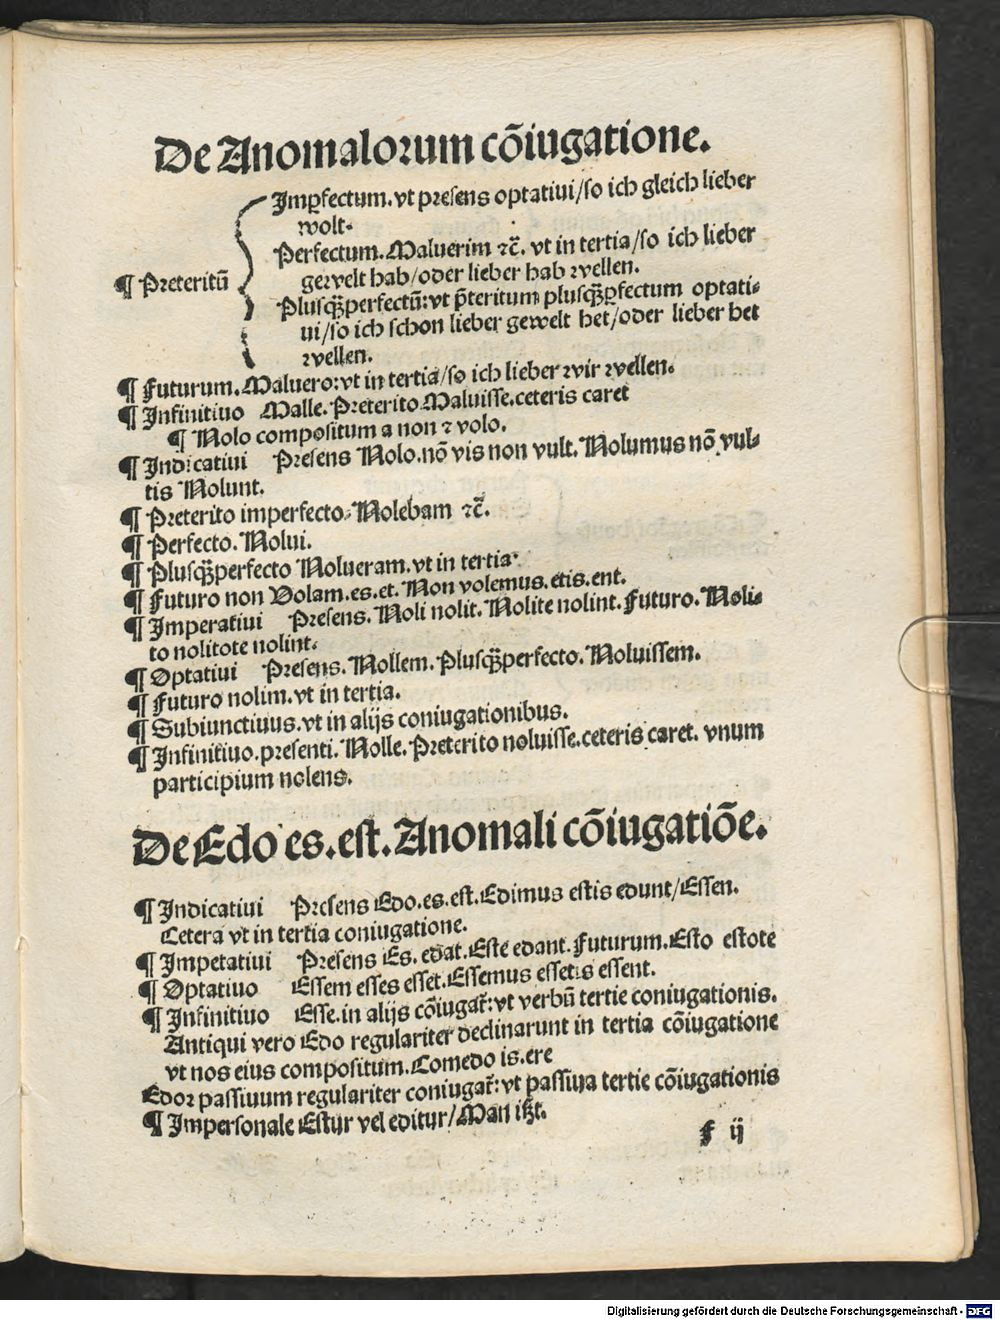 De Anomalorum cõiugatione.
Imꝑfectum. vt presens optatiui/so ich gleich lieber
wolt.
Perfectum. Maluerim ⁊c̃. vt in tertia/so ich lieber
¶ Preteritũ
gewelt hab/oder lieber hab wellen.
Plusq̃ꝑfectũ: vt p̃teritum plusq̃ꝑfectum optati-
ui/so ich schon lieber gewelt het/oder lieber het
wellen.
¶ Futurum. Maluero: vt in tertia/so ich lieber wir wellen.
¶ Infinitiuo Malle. Preterito Maluisse. ceteris caret
¶ Nolo compositum a non ⁊ volo.
¶ Indicatiui Presens Nolo. nõ vis non vult. Nolumus nõ vul-
tis Nolunt.
¶ Preterito imperfecto. Nolebam ⁊c̃.
¶ Perfecto. Nolui.
¶ Plusq̃perfecto Nolueram. vt in tertia.
¶ Futuro non Uolam. es. et. Non volemus. etis. ent.
¶ Imperatiui Presens. Noli nolit. Nolite nolint. Futuro. Noli-
to nolitote nolint.
¶ Optatiui Presens. Nollem. Plusq̃perfecto. Noluissem.
¶ Futuro nolim. vt in tertia.
¶ Subiunctiuus. vt in alijs coniugationibus.
¶ Infinitiuo. presenti. Nolle. Preterito noluisse. ceteris caret. vnum
participium nolens.
De Edo es. est. Anomali cõiugatiõe.
¶ Indicatiui Presens Edo. es. est. Edimus estis edunt/Essen.
Cetera vt in tertia coniugatione.
¶ Impetatiui Presens Es. edat. Este edant. Futurum. Esto estote
¶ Optatiuo Essem esses esset. Essemus essetis essent.
¶ Infinitiuo Esse. in alijs cõiugat̃: vt verbũ tertie coniugationis.
Antiqui vero Edo regulariter declinarunt in tertia cõiugatione
vt nos eius compositum. Comedo is. ere
Edor passiuum regulariter coniugat̃: vt passiua tertie cõiugationis
¶ Impersonale Estur vel editur/Man ißt.
f ij
Digitalisierung gefördert durch die Deutsche Forschungsgemeinschaft - DFG